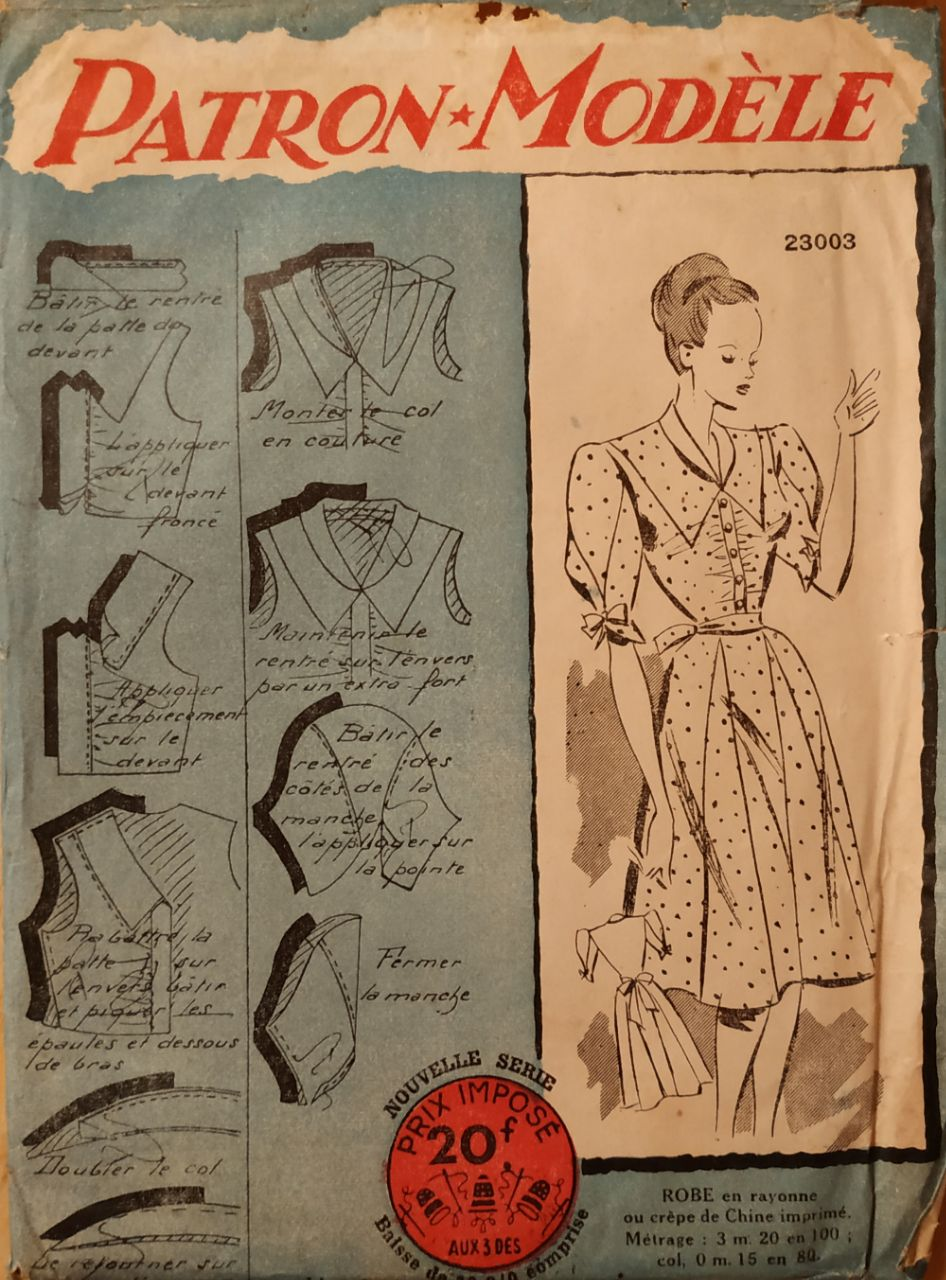 PATRON★MODÈLE
23003
Bâtir le rentré
de la patte du
devant
L'appliquer
sur le
devant
froncé
Appliquer
l'empiècement
sur le
devant
Rabattre la
patte sur
l'envers bâtir
et piquer les
épaules et dessous
de bras
Doubler le col
Le retourner sur
Monter le col
en couture
Maintenir le
rentré sur l'envers
par un extra-fort
Bâtir le
rentré des
côtés de la
manche
l'appliquer sur
la pointe
Fermer
la manche
NOUVELLE SERIE
PRIX IMPOSÉ
20f
AUX 3 DÉS
Baisse de comprise
ROBE en rayonne
ou crêpe de Chine imprimé.
Métrage : 3 m. 20 en 100 ;
col, 0 m. 15 en 80.